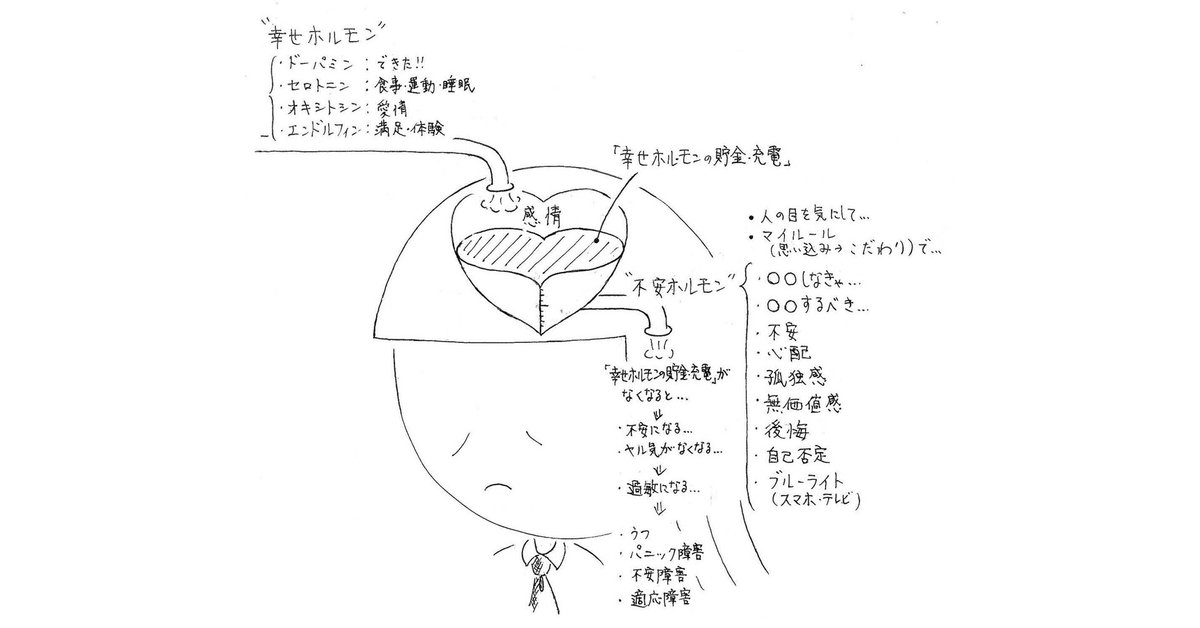 "幸せホルモン"
・ドーパミン：できた!!
・セロトニン：食事・運動・睡眠
・オキシトシン：愛情
・エンドルフィン：満足・体験
「幸せホルモンの貯金・充電」
感情
"不安ホルモン"
・人の目を気にして…
・マイルール
(思い込み→こだわり)で…
・〇〇しなきゃ…
・〇〇するべき…
・不安
・心配
・孤独感
・無価値感
・後悔
・自己否定
・ブルーライト
(スマホ・テレビ)
「幸せホルモンの貯金・充電」が
なくなると…
⇓
・不安になる…
・ヤル気がなくなる…
⇓
・過敏になる…
⇓
・うつ
・パニック障害
・不安障害
・適応障害